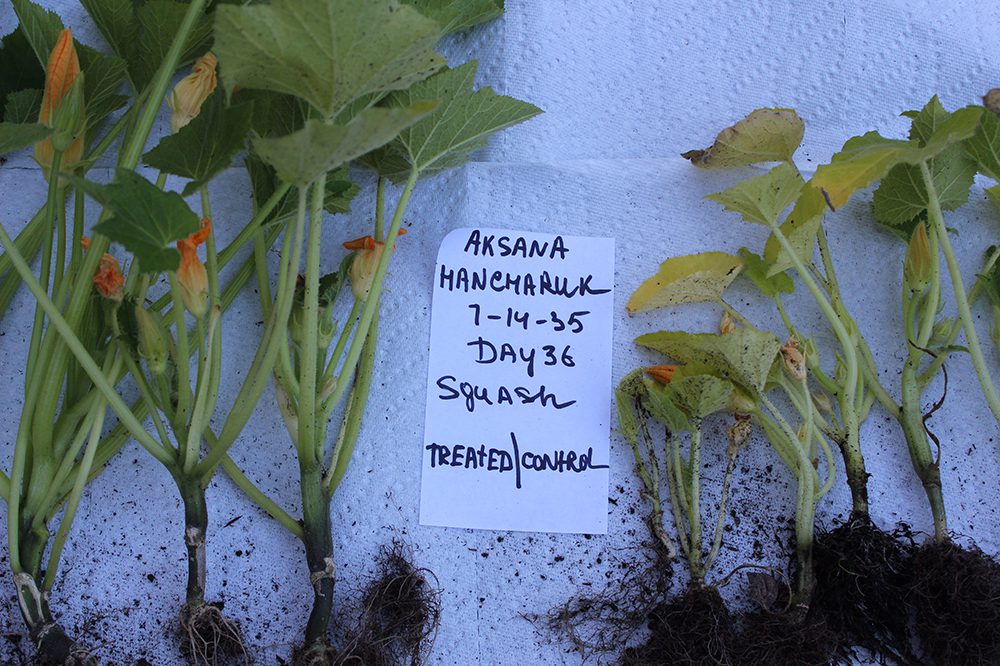 AKSANA
HANCHARUK
7-14-35
DAY 36
SquASh
TREATED|CONTROL